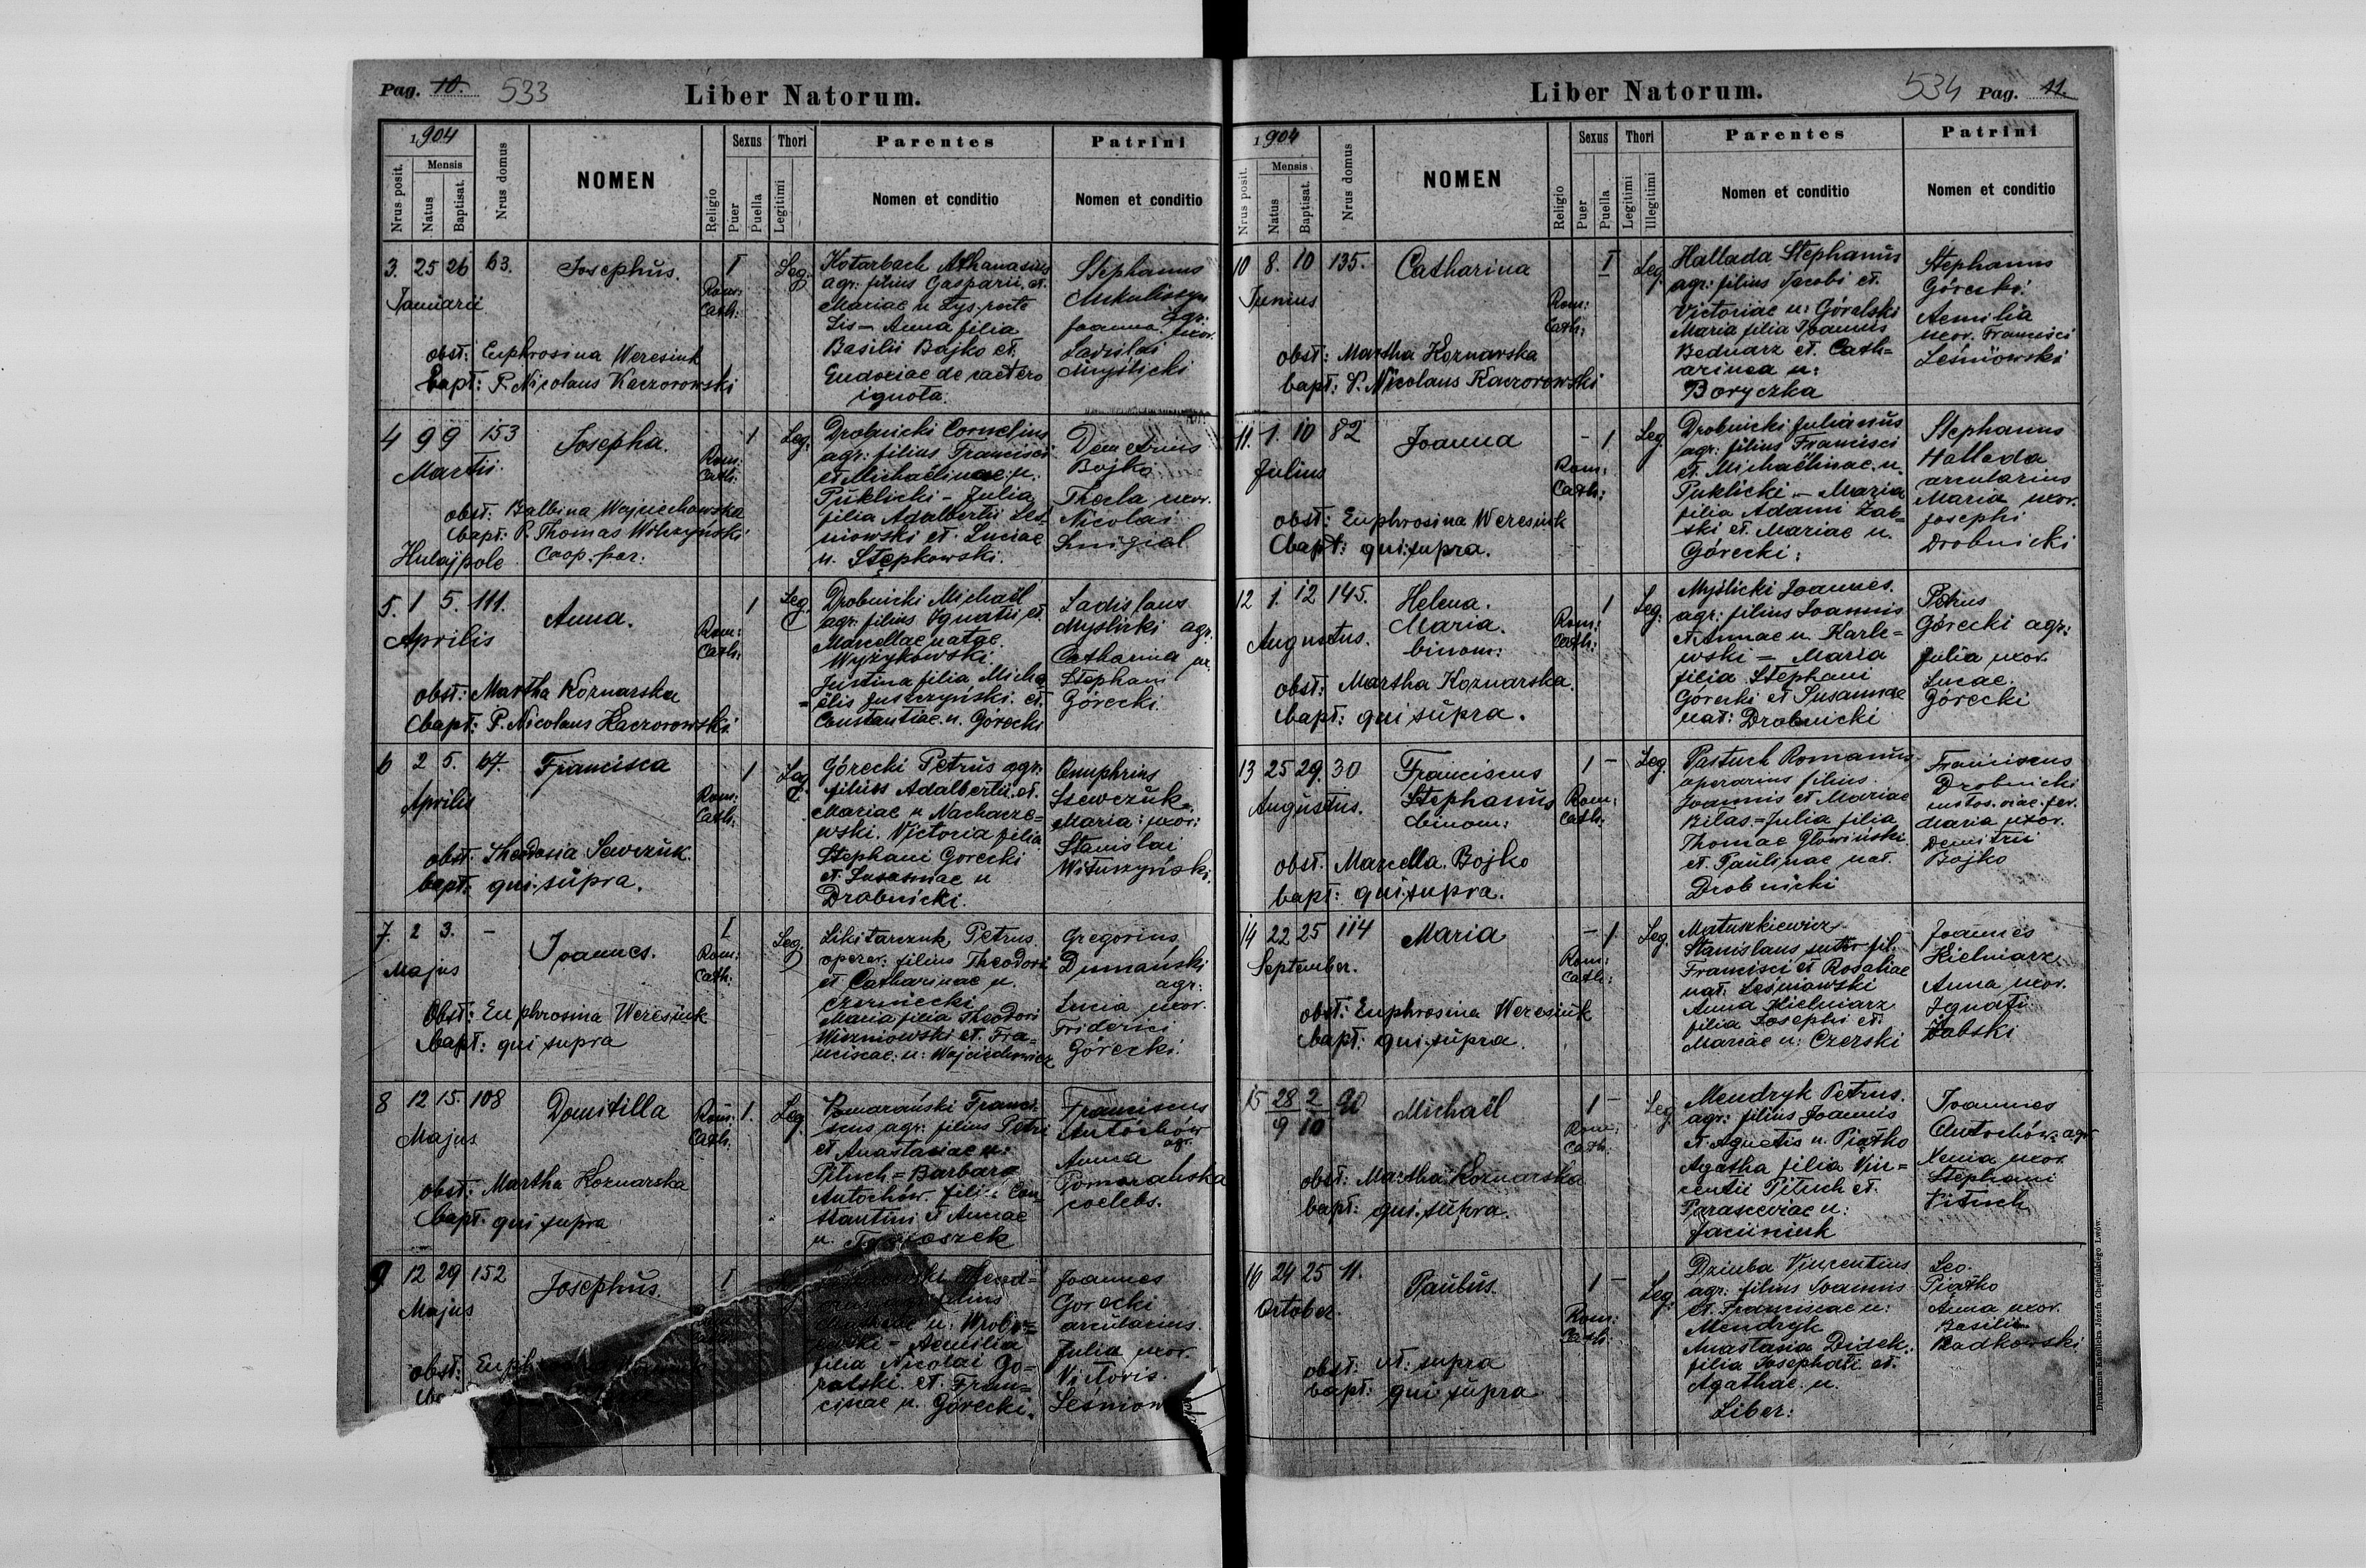 Pag. 10. 533
Liber Natorum.
1904
Nrus posit.
Mensis
Natus
Baptisat.
Nrus domus
NOMEN
Religio
Sexus
Puer
Puella
Thori
Legitimi
Parentes
Nomen et conditio
Patrini
Nomen et conditio
3. 25 26 63. Josephus. I Leg.
Januarii
Rom:
Cath:
obst: Euphrosina Weresiuk
bapt: P. Nicolaus Kaczorowski
Kotarbach Athanasius
agr: filius Gasparii et.
Mariae n Lys recte
Lis – Anna filia
Basilii Bojko et.
Eudociae de caetero
ignota.
Stephanus
agr:
Joanna uxor.
Ladislai
Myślicki
4 9 9 153 Josepha. 1 Leg:
Martii.
Rom:
Cath:
obst: Balbina Wojciechowska
bapt: P. Thomas Wilczyński
Hulajpole Coop. par:
Drobnicki Cornelius
agr: filius Francisci
et Michaëlinae: n.
Puklicki – Julia
filia Adalbertii Leś-
niowski et. Luciae
n. Stępkowski.
Demetrius
Bojko
Thecla uxor.
Nicolai
Śmigiel
5. 1 5. 111. Anna. 1 Leg.
Aprilis
Rom:
Cath:
obst: Martha Koznarska
bapt: P. Nicolaus Kaczorowski
Drobnicki Michaël
agr: filius Ignatii et.
Marcellae natae
Wyżykowski.
Justina filia Micha
=ëlis Juszczyński. et.
Constantiae. n. Górecki
Ladislaus
Myslicki agr.
Catharina ux.
Stephani
Górecki.
6 2 5. 67. Francisca 1 Leg
Aprilis
Rom:
Cath:
obst. Theodosia Sawczuk.
bapt: qui supra.
Górecki Petrus agr:
filius Adalbertii et.
Mariae n Nachacze=
wski. Victoria filia
Stephani Gorecki
et Susannae n
Drobnicki.
Onuphrius
Szewczuk.
Maria: uxor:
Stanislai
Wituszyński.
7. 2 3. – Joannes. I Leg.
Majus
Rom:
Cath:
Obst: Euphrosina Weresiuk
bapt: qui supra
Likitarczuk Petrus
operar: filius Theodori
et Catharinae n.
Czerniecki
Maria filia Theodori
Wiszniowski et. Fra=
nciscae. n: Wojciechowicz
Gregorius
Dumański
agr:
Lucia uxor.
Friderici
Górecki.
8 12 15. 108 Domitilla Rom: 1. Leg.
Majus
Cath:
obst: Martha Koznarska
bapt: qui supra
Pomarański Franci
scus agr: filius Petri
et Anastasiae n:
Pituch = Barbara
Antochów filia Con
stantini et Annae
n.
Franciscus
Antochów
agr.
Anna
Pomarańska
coelebs.
9 12 29 152 Josephus. I
Majus
obst: Euph
Theod=
filius
n: Wrobl=
ewski – Aemilia
filia Nicolai Gó=
ralski. et. Fran=
ciscae n. Górecki.
Joannes
Gorecki
arcularius.
Julia uxor.
Victoris.
Leśniow
Liber Natorum.
534 Pag. 11.
1904
Nrus posit.
Mensis
Natus
Baptisat.
Nrus domus
NOMEN
Religio
Sexus
Puer
Puella
Thori
Legitimi
Illegitimi
Parentes
Nomen et conditio
Patrini
Nomen et conditio
10 8. 10 135. Catharina I Leg.
Junius
Rom:
Cath:
obst: Martha Koznarska
bapt: P. Nicolaus Kaczorowski
Hallada Stephanus
agr: filius Jacobi et.
Victoriae n: Góralski
Maria filia Joannis
Bednarz et. Cath=
arinea n:
Boryczka
Stephanus
Górecki
Aemilia
uxor. Francisci
Leśniowski
11. 1. 10 82 Joanna – 1 Leg.
Julius
Rom:
Cath:
obst: Euphrosina Weresiuk
bapt: qui supra.
Drobnicki Julianus
agr: filius Francisci
et. Michaëlinae. n.
Puklicki – Maria
filia Adami Żab-
ski et. Mariae n.
Górecki:
Stephanus
Hallada
arcularius
Maria uxor.
Josephi
Drobnicki
12 1. 12 145. Helena. 1 Leg.
Maria.
Augustus. binom:
Rom:
Cath:
obst: Martha Koznarska.
bapt: qui supra.
Myślicki Joannes.
agr: filius Joannis
et Annae n. Karle=
wski = Maria
filia Stephani
Górecki et Susannae
nat: Drobnicki
Petrus
Górecki agr:
Julia uxor.
Lucae.
Górecki
13 25 29. 30 Franciscus 1 – Leg.
Augustus. Stephanus
binom:
Rom:
Cath:
obst. Marcella. Bojko
bapt: qui supra.
Pastuch Romanus
operarius filius.
Joannis et Mariae
Bilas = Julia filia
Thomae Głowiński
et. Paulinae nat.
Drobnicki
Franciscus
Drobnicki
custos. viae. fer.
Maria uxor.
Demitrii
Bojko
14 22 25 114 Maria – 1. Leg.
September.
Rom:
Cath:
obst: Euphrosina Weresiuk
bapt: qui supra.
Matuszkiewicz
Stanislaus sutor fil.
Francisci et Rosaliae
nat. Leśniowski
Anna Kielniarz
filia Josephi et.
Mariae n: Czerski
Joannes
Kielniarz
Anna uxor.
Ignatii
Żabski
15 28/9 2/10 90 Michaël 1 – Leg
Rom:
Cath:
obst: Martha Koznarska
bapt: qui supra.
Mendryk Petrus.
agr: filius Joannis
et Agnetis n. Piątko
Agatha filia Vin=
centii Pituch et.
Parasceviae n:
Jaciiniuk
Joannes
Antochów. agr
Xenia uxor.
Stephani
Pituch
16 24 25 11. Paulus. 1 – Leg.
October.
Rom:
Cath:
obst: ut. supra
bapt: qui supra
Dziuba Vincentius
agr: filius Joannis
et. Franciscae n:
Mendryk
Anastasia Didek.
filia Josephati et.
Agathae. n.
Liber:
Leo.
Piątko
Anna uxor.
Basilii
Badkowski
Drukarnia Katolicka Józefa Chęcińskiego Lwów.